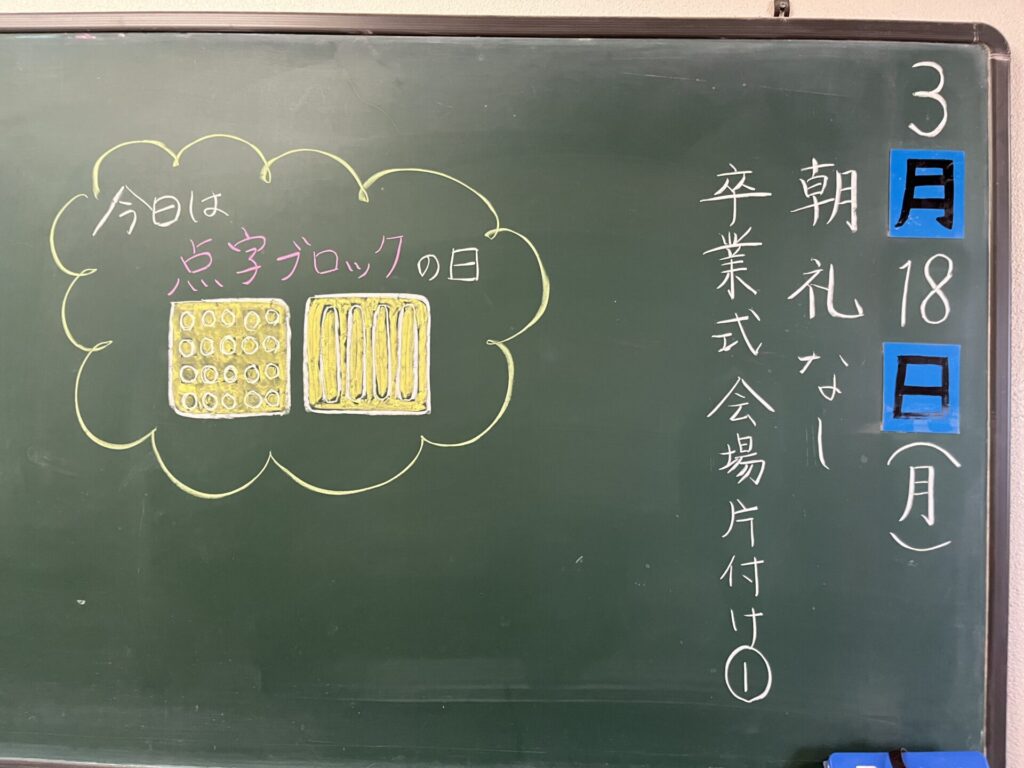 3月18日(月)
朝礼なし
卒業式会場片付け①
今日は
点字ブロックの日